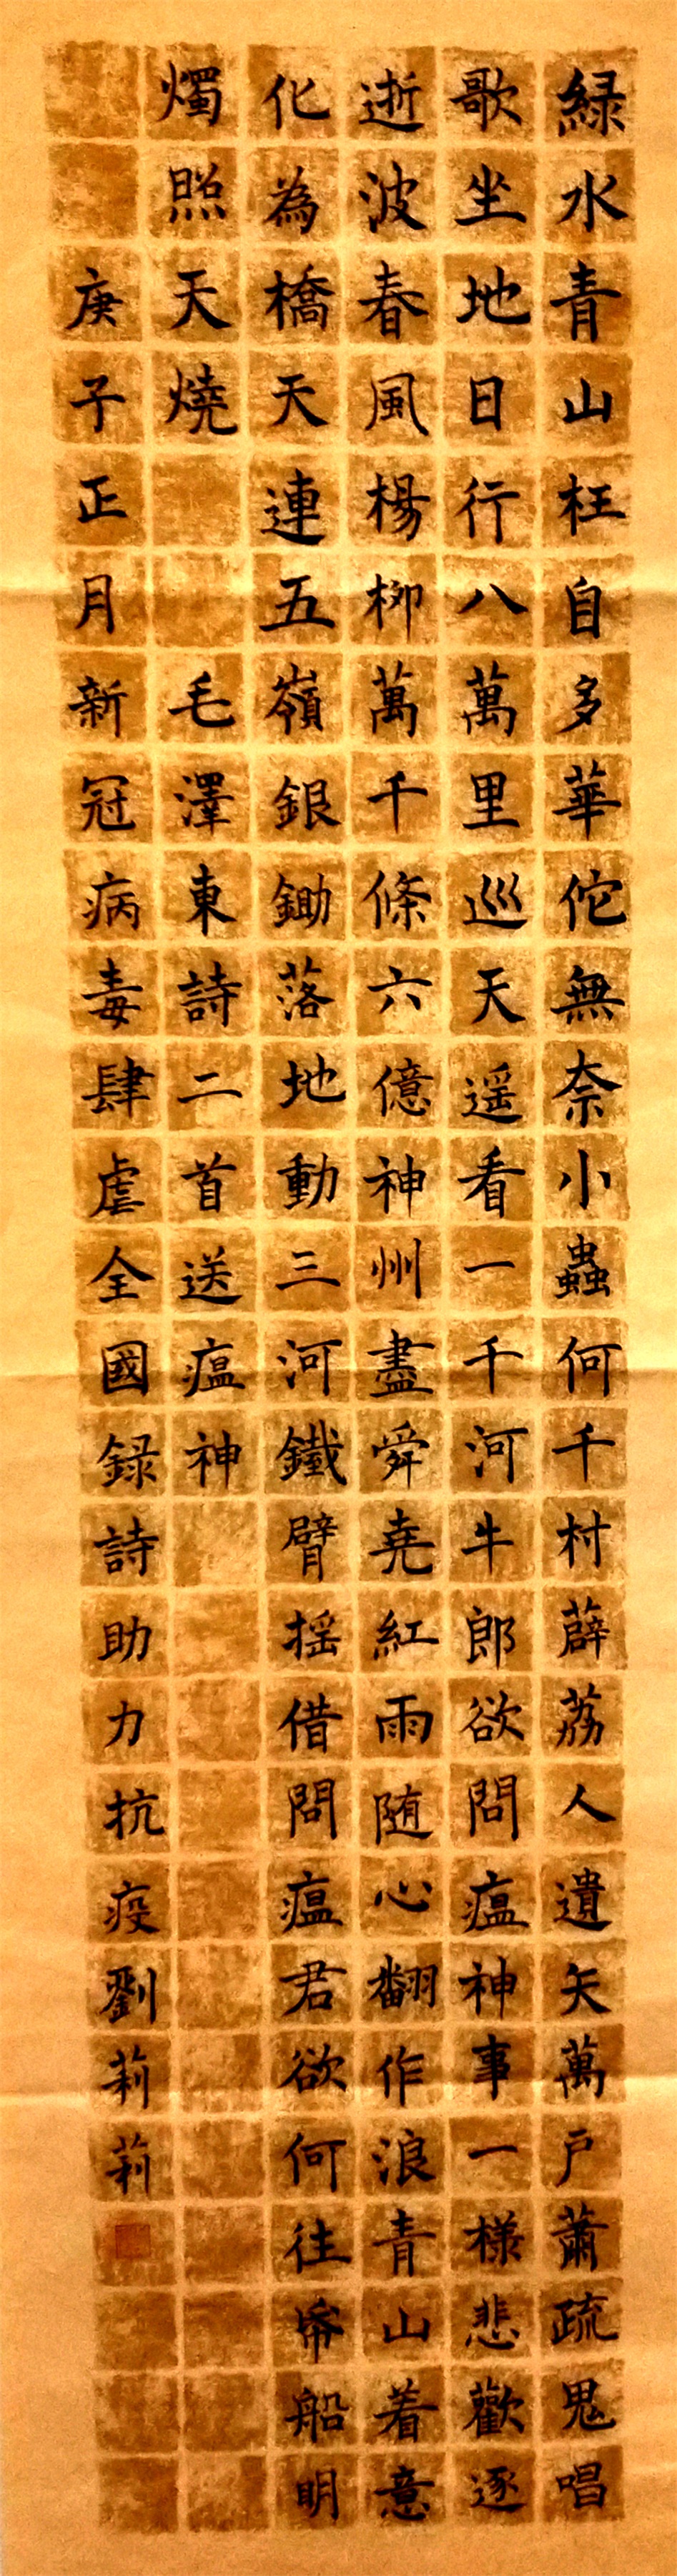 緑水青山枉自多華佗無奈小蟲何千村薜荔人遺矢萬户蕭疏鬼唱
歌坐地日行八萬里巡天遥看一千河牛郎欲問瘟神事一樣悲歡逐
逝波春風楊柳萬千條六億神州盡舜堯紅雨随心翻作浪青山着意
化為橋天連五嶺銀鋤落地動三河鐵臂摇借問瘟君欲何往帋船明
燭照天燒
毛澤東詩二首送瘟神
庚子正月新冠病毒肆虐全國録詩助力抗疫劉莉莉